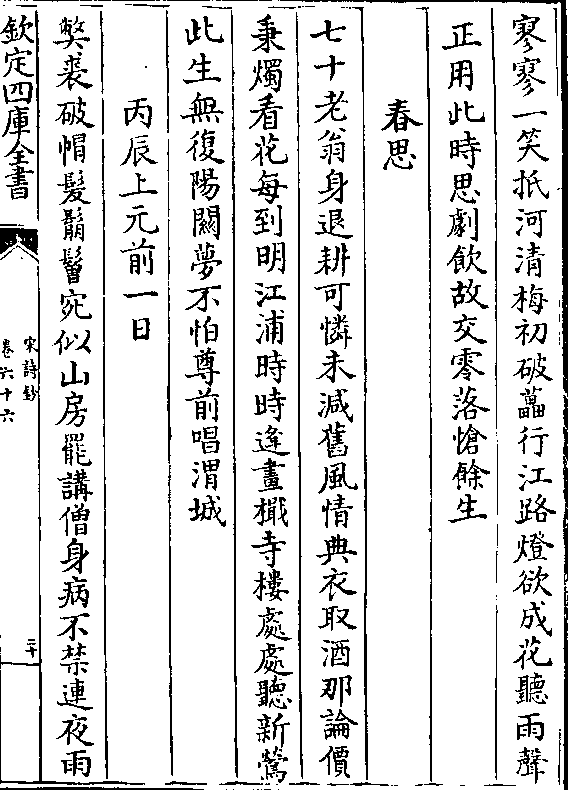 寥寥一笑抵河清梅初破蘦行江路燈欲成花聽雨聲
正用此時思劇飲故交零落愴餘生
春思
七十老翁身退耕可憐未減舊風情典衣取酒那論價
秉燭看花每到明江浦時時逢畫檝寺樓處處聽新鶯
此生無復陽關夢不怕尊前唱渭城
丙辰上元前一日
獘裘破帽髮鬅鬙宛似山房罷講僧身病不禁連夜雨
欽定四庫全書
宋詩鈔
卷六十六
二十